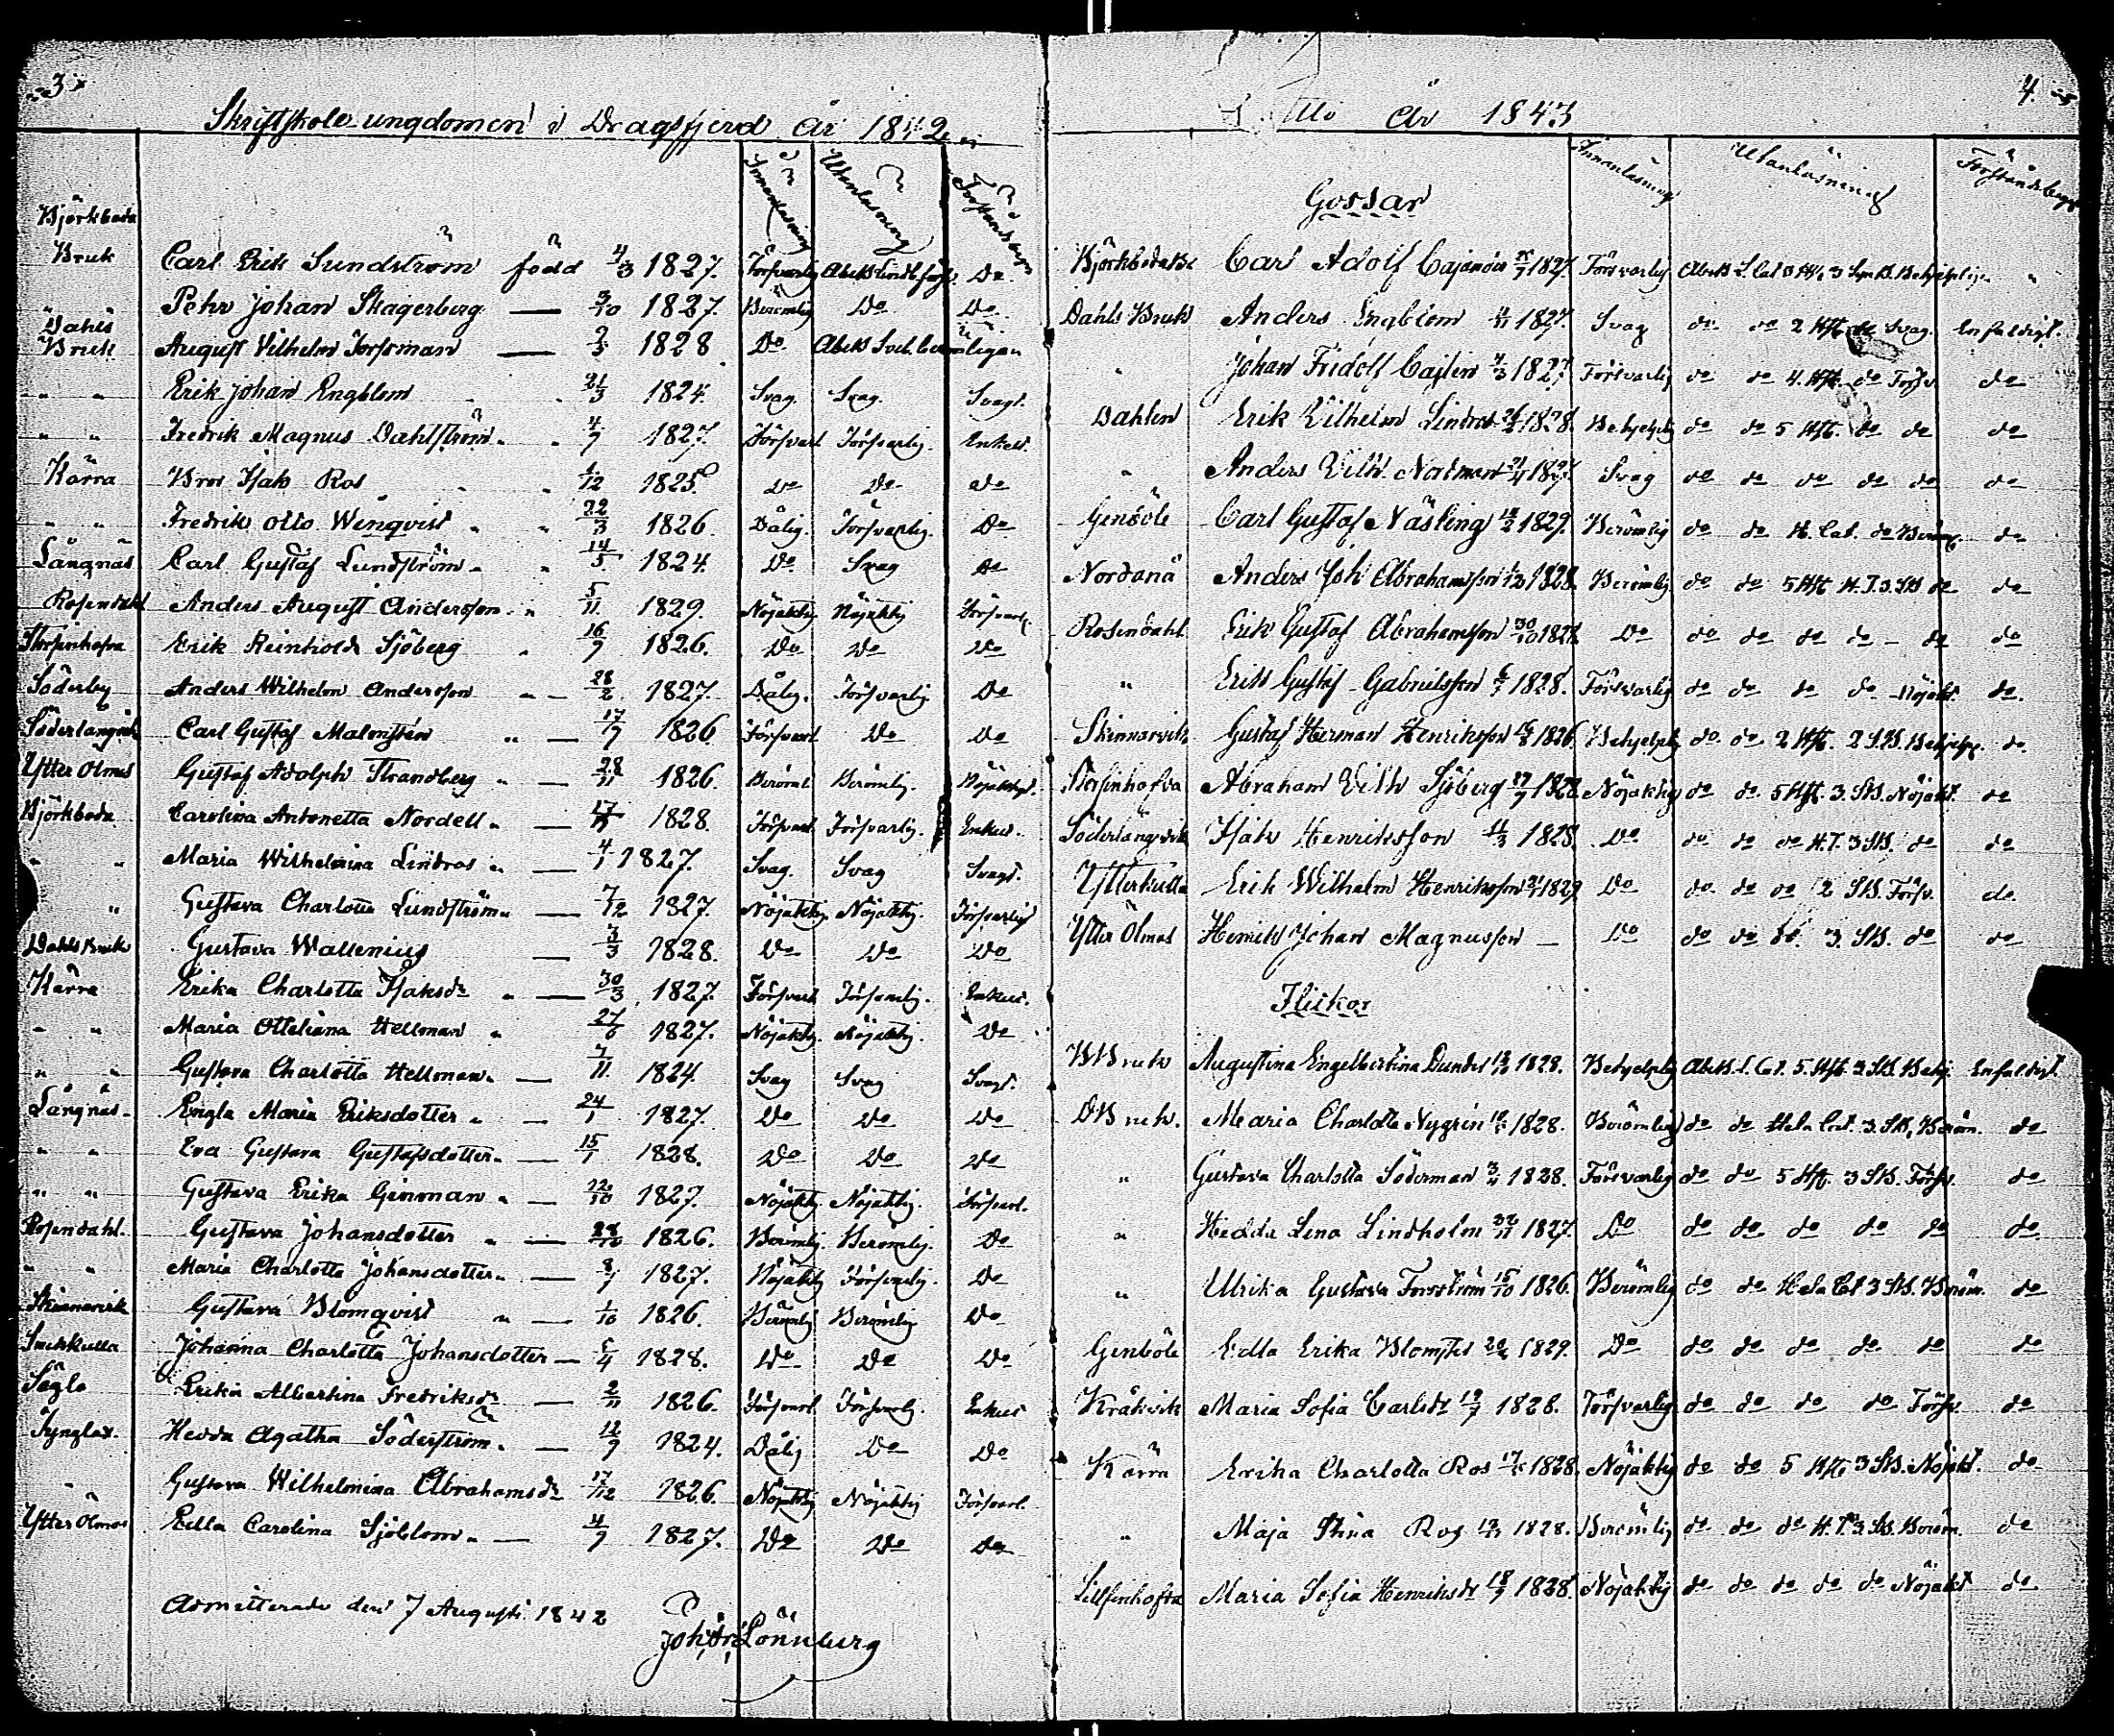 3
Skriftskole-ungdomen i Dragsfjerd år 1842
Innanläsning Utanläsning Förståndsbegr
Björkboda
Bruk Carl Erik Sundström född 4/3 1827. Försvarlig Do
Pehr Johan Skagerberg — 3/10 1827. Berömlig Do Do
Dahls
Bruk August Vilhelm Forssman — 1828 Do
" " Erik Johan Engblom 21/3 1824. Svag. Svag. Svagt.
" " Fredrik Magnus Dahlström " " 4/7 1827. Försvarl Försvarlig. Enkelt.
Kärra Isak Ros " 1/12 1825. Do Do Do
" " Fredrik Otto Wenqvist " " 22/3 1826 Dålig. Försvarlig. Do
Långnäs Carl Gustaf Lundström " 14/5 1824. Do Svag Do
Rosendahl Anders August Andersson " 5/11 1829. Nöjaktig Nöjaktig Försvarl.
Storfinhofva Erik Reinhold Sjöberg " 16/9 1826. Do Do Do
Söderby Anders Wilhelm Andersson " — 28/2 1827. Dålig. Försvarlig Do
Söderlangvik Carl Gustaf Malmstén " — 17/7 1826 Försvarl Do Do
Ytter Ölmos Gustaf Adolph Strandberg " — 28/11 1826. Berömli. Berömlig. Nöjaktigt.
Björkboda Carolina Antonetta Nordell " — 1828. Försvarl. Försvarlig. Enkelt.
" " Maria Wilhelmina Lindros " — 4/1 1827. Svag. Svag Svagt.
" Gustava Charlotta Lundström " — 7/12 1827. Nöjaktig Nöjaktig. Försvarligt
Dahls Bruk Gustava Wallenius — 3/3 1828. Do Do Do
Kärra Erika Charlotta Isaksdr " — 30/3 1827. Försvarl Försvarlig. Enkelt.
" " Maria Otteliana Hellman " 27/6 1827. Nöjaktig. Nöjaktig. Do
" " Gustava Charlotta Hellman " — 7/11 1824. Svag Svag Svagt.
Långnäs Engla Maria Eriksdotter " — 24/1 1827. Do Do Do
" " Eva Gustava Gustafsdotter " — 15/1 1828. Do Do Do
" " Gustava Erika Ginman " — 12/10 1827. Nöjaktig Nöjaktig. Försvarl.
Rosendahl. Gustava Johansdotter " — 28/10 1826. Berömlig. Berömlig. Do
" " Maria Charlotta Johansdotter " — 1827. Nöjaktig Försvarlig. Do
Skinnarvik Gustava Blomqvist " — 1/10 1826. Berömlig Berömlig Do
Smedskulla Johanna Charlotta Johansdotter — 5/4 1828. Do Do Do
Sögla Erika Albertina Fredriksdr — 2/11 1826. Försvarl Försvarlig. Enkelt
Synglax. Hedda Agatha Söderström " — 12/9 1824. Dålig Do Do
" Gustava Wilhelmina Abrahamsdr 17/12 1826. Nöjaktig Nöjaktig Försvarl.
Ytter Ölmos Edla Carolina Sjöblom " — 4/9 1827. Do Do Do
Admitterade den 7 Augusti 1842
Lönnberg
4.
Dito År 1843
Innanläsning Utanläsning Förståndsbegr
Gossar
Björkboda Bk Carl Adolf Cajanus 1827. Försvarlig
Dahls Bruk Anders Engblom 1827. Svag do do 2 Hft do Svag. Enfaldigt.
" Johan Fridolf Cajlin 1827 Försvarlig do do 4. Hft. do Försv. do
Dahlen Erik Vilhelm Lindros 1828. Behjelplig do do 5 Hft. do do do
" Anders Vilh. Nordman 1827. Svag do do do do do do
Genböle Carl Gustaf Näsling 1829. Berömlig do do H. Cat. do Beröm. do
Nordanå Anders Joh Abrahamsson 1828. Berömlig do do 5 Hft H.T. 3. Stk do do
Rosendahl. Erik Gustaf Abrahamsson 30/10 1828 Do do do do do - do do
" Erik Gustaf Gabrielsson 1828. Försvarlig do do do do Nöjakt. do.
Skinnarvik Gustaf Herman Henriksson 1826. Behjelplig do do 2 Hft. 2 Stk. Behjelpl. do
Storfinhofva Abraham Vilh Sjöberg 27/7 1828. Nöjaktig do do 5 Hft. 3. Stk. Nöjakt. do
Söderlångvik Isak Henriksson 11/3 1828. Do do do do H.T. 3 Stk. do do
Ytterkulla Erik Wilhelm Henriksson 1829 Do do do do 2 Stk. Försv. do.
Ytter Ölmos Henrik Johan Magnusson — Do do do do. 3. Stk. do do
Flickor
B Bruk Augustina Engelbertina Dunder 1828. Behjelplig Abc B. L. Cat. 5. Hft. 2 Stk Behj. Enfaldigt
D Bruk. Maria Charlotta Nygrén 1828. Berömlig do do Hela Cat. 3. Stk, Beröm. do
" Gustava Charlotta Söderman 1828. Försvarlig do do 5 Hft. 3 Stk. Försv. do
" Hedda Lena Lindholm 1827. Do do do do do do do.
" Ulrika Gustava Forsström 15/10 1826. Berömlig do do Hela Cat 3 Stk. Beröm. do
Genböle Edla Erika Blomster 1829. Do do do do do do do
Kråkvik Maria Sofia Carlsdr 19/7 1828. Försvarlig do do do do Försv. do
Kärra Erika Charlotta Ros 1828. Nöjaktig do do 5 Hft. 3 Stk. Nöjakt. do
" Maja Stina Ros 1828. Berömlig do do do H.T. 3 Stk. Beröm. do
Lillfinhofva Maria Sofia Henriksdr 18/9 1828. Nöjaktig do do do do do Nöjakt do